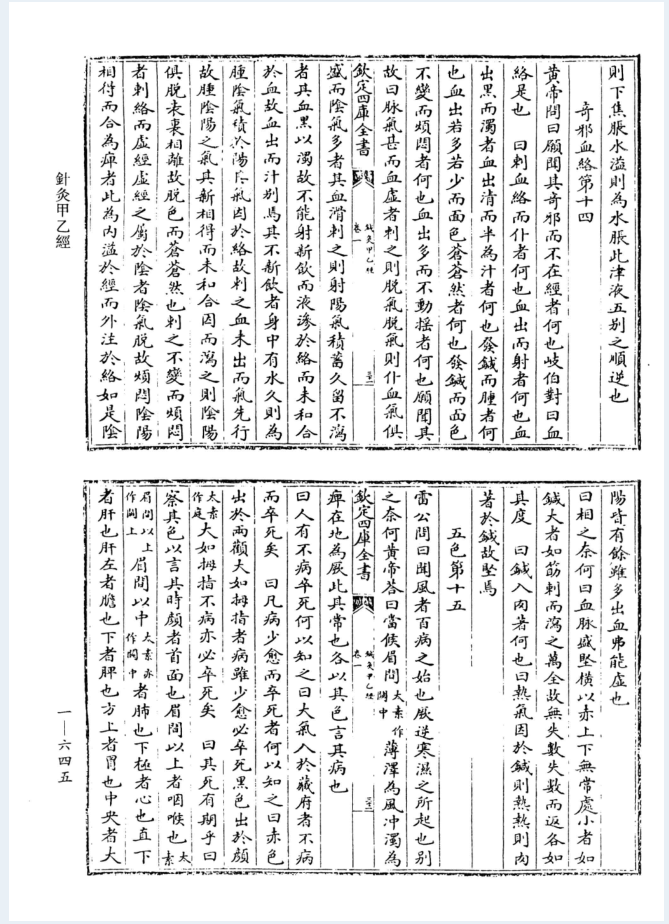 則下焦脹水溢則為水脹此津液五别之順逆也
奇邪血絡第十四
黄帝問曰願聞其奇邪而不在經者何也岐伯對曰血
絡是也　曰刺血絡而仆者何也血出而射者何也血
出黑而濁者血出清而半為汁者何也發鍼而腫者何
也血出若多若少而面色蒼蒼然者何也發鍼而面色
不變而煩悶者何也血出多而不動揺者何也願聞其
故曰脉氣甚而血虚者刺之則脱氣脱氣則仆血氣俱
欽定四庫全書
鍼灸甲乙經
卷一
盛而陰氣多者其血滑刺之則射陽氣積蓄久留不瀉
者其血黑以濁故不能射新飲而液滲於絡而未和合
於血故血出而汁别焉其不新飲者身中有水久則為
腫陰氣積於陽氣因於絡故刺之血未出而氣先行
故腫陰陽之氣其新相得而未和合因而瀉之則陰陽
俱脱表裏相離故脱色而蒼蒼然也刺之不變而煩悶
者刺絡而虚經虚經之屬於陰者陰氣脱故煩悶陰陽
相得而合為痺者此為内溢於經而外注於絡如是陰
陽皆有餘雖多出血弗能虚也
曰相之奈何曰血脉盛堅横以赤上下無常處小者如
鍼大者如筯刺而瀉之萬全故無失數失數而返各如
其度　曰鍼入肉著何也曰熱氣因於鍼則熱熱則肉
著於鍼故堅焉
五色第十五
雷公問曰聞風者百病之始也厥逆寒濕之所起也别
之奈何黄帝答曰當候眉間太素作闕中薄澤為風冲濁為
痺在地為厥此其常也各以其色言其病也
欽定四庫全書
鍼灸甲乙經
卷一
曰人有不病卒死何以知之曰大氣入於藏府者不病
而卒死矣　曰凡病少愈而卒死者何以知之曰赤色
出於兩顴大如拇指者病雖少愈必卒死黑色出於顔
太素作庭大如拇指不病亦必卒死矣　曰其死有期乎曰
察其色以言其時顔者首面也眉間以上者咽喉也太素
眉間以上作闕上眉間以中太素亦作闕中者肺也下極者心也直下
者肝也肝左者膽也下者脾也方上者胃也中央者大
針灸甲乙經
一—六四五